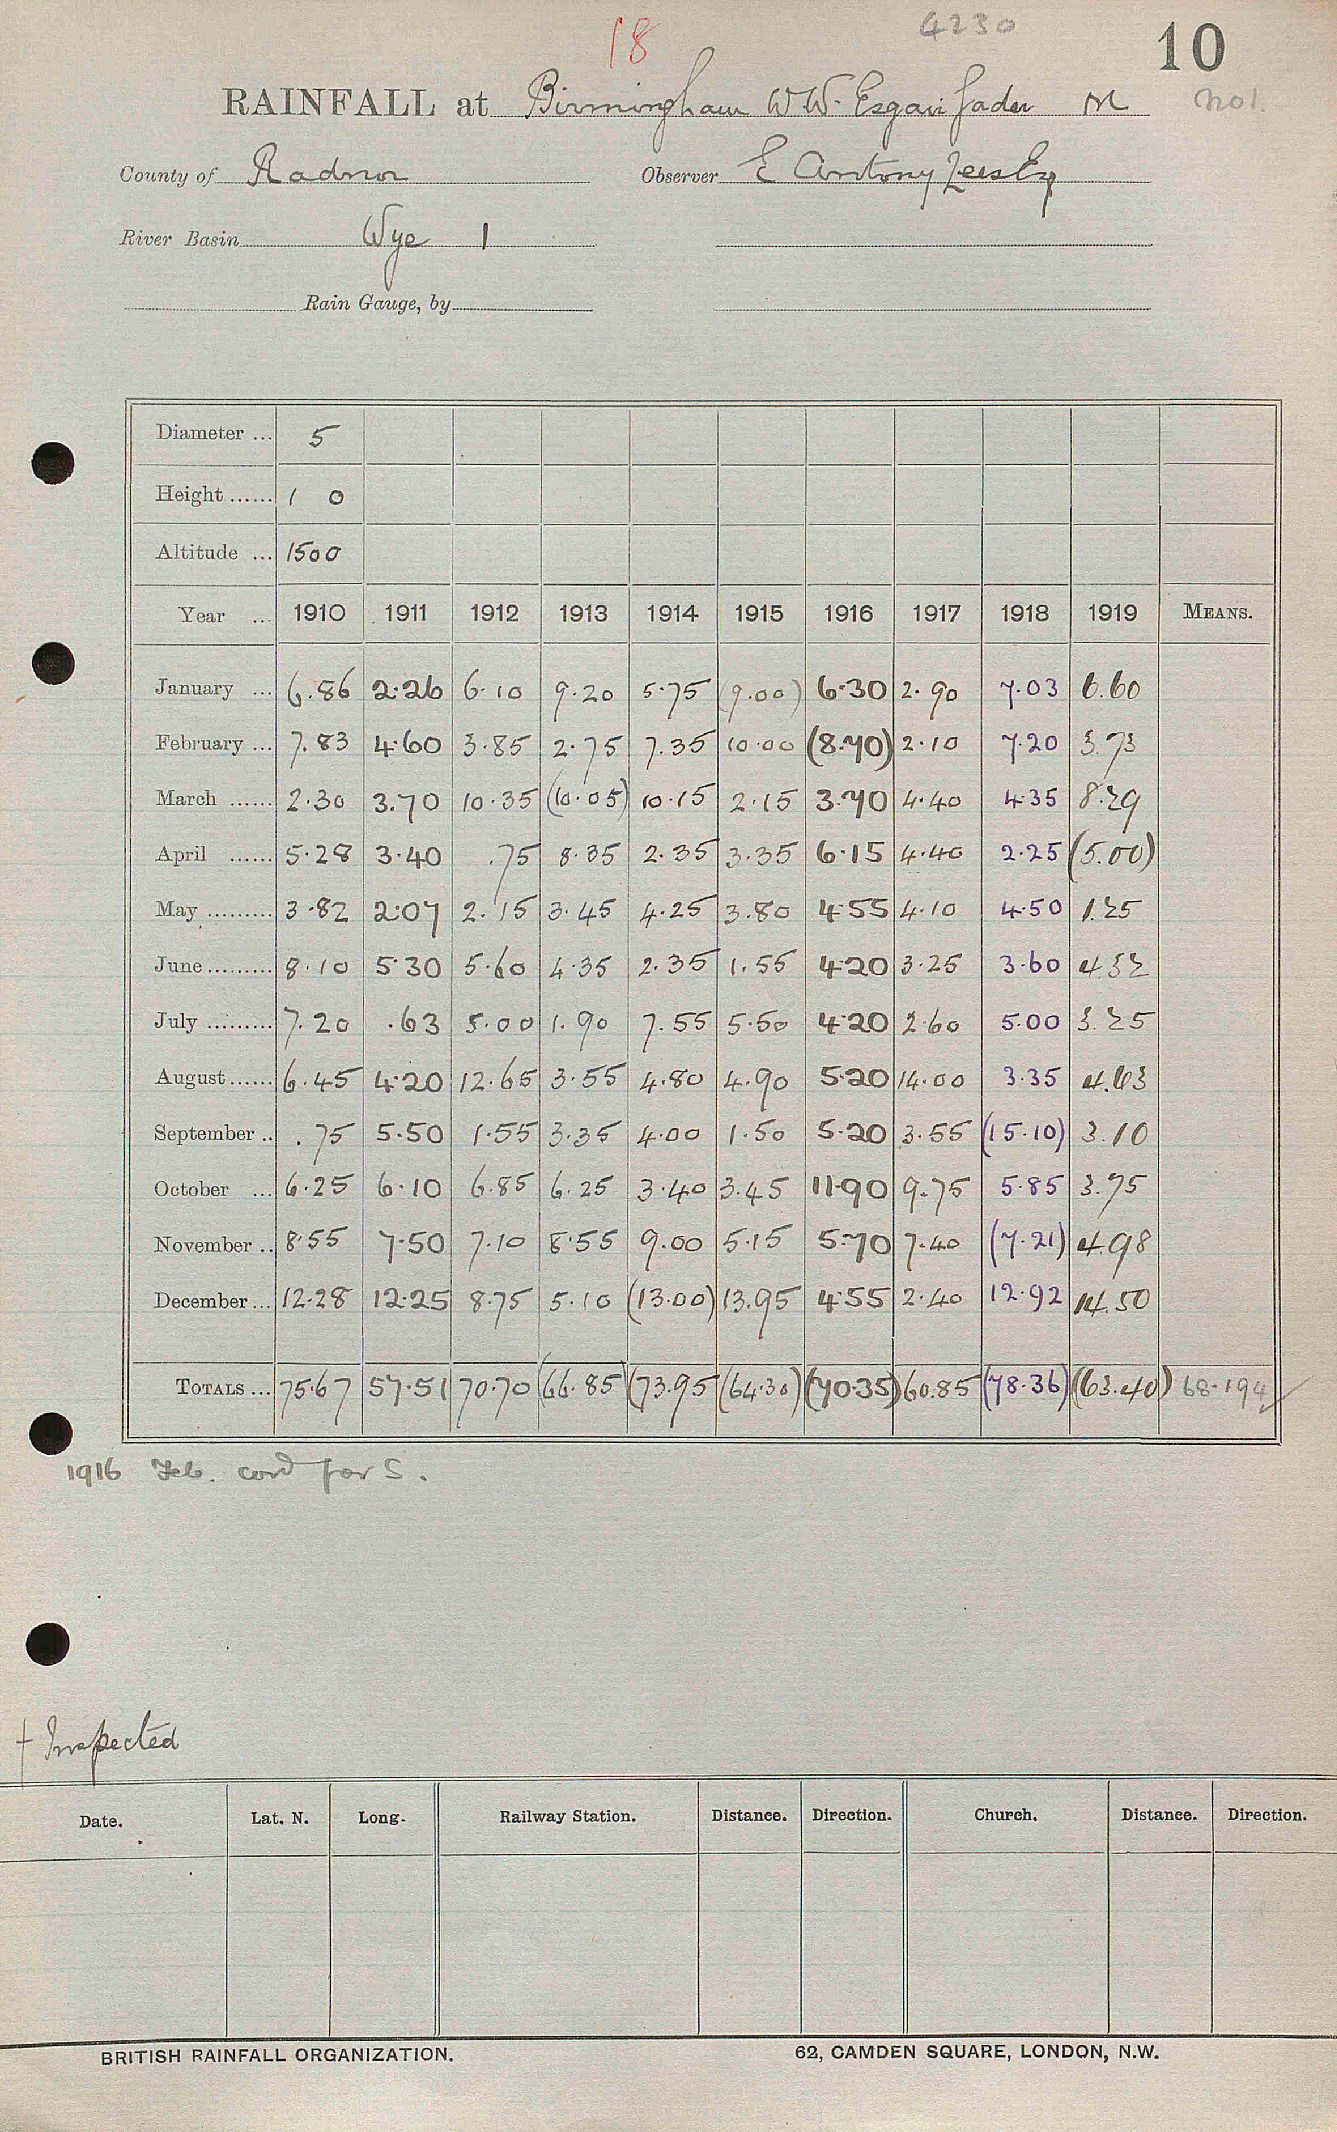 18 4230 10
RAINFALL at Birmingham W W. Esgair Gader M No 1.
County of Radnor Observer E Antony Lees Esq
River Basin Wye 1
Rain Gauge, by
Diameter ... 5
Height ...... 1 0
Altitude ... 1500
Year ... 1910 1911 1912 1913 1914 1915 1916 1917 1918 1919 MEANS.
January ... 6.86 2.26 6.10 9.20 5.75 (9.00) 6.30 2.90 7.03 6.60
February ... 7.83 4.60 3.85 2.75 7.35 10.00 (8.70) 2.10 7.20 3.73
March ...... 2.30 3.70 10.35 (10.05) 10.15 2.15 3.70 4.40 4.35 8.29
April ...... 5.28 3.40 .75 8.35 2.35 3.35 6.15 4.40 2.25 (5.00)
May ......... 3.82 2.07 2.15 3.45 4.25 3.80 4.55 4.10 4.50 1.25
June ......... 8.10 5.30 5.60 4.35 2.35 1.55 4.20 3.25 3.60 4.32
July ......... 7.20 .63 5.00 1.90 7.55 5.50 4.20 2.60 5.00 3.25
August ...... 6.45 4.20 12.65 3.55 4.80 4.90 5.20 14.00 3.35 4.63
September .. .75 5.50 1.55 3.35 4.00 1.50 5.20 3.55 (15.10) 3.10
October ... 6.25 6.10 6.85 6.25 3.40 3.45 11.90 9.75 5.85 3.75
November .. 8.55 7.50 7.10 8.55 9.00 5.15 5.70 7.40 (7.21) 4.98
December ... 12.28 12.25 8.75 5.10 (13.00) 13.95 4.55 2.40 12.92 14.50
TOTALS ... 75.67 57.51 70.70 (66.85) (73.95) (64.30) (70.35) 60.85 (78.36) (63.40) 68.194
1916 Feb. cord for S.
+ Inspected
Date. Lat. N. Long. Railway Station. Distance. Direction. Church. Distance. Direction.
BRITISH RAINFALL ORGANIZATION. 62, CAMDEN SQUARE, LONDON, N.W.